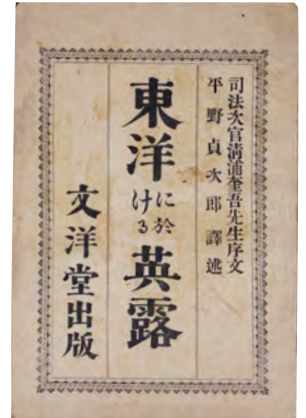 司法次官淸浦奎吾先生序文
平野貞次郎譯述
東洋に於ける英露
文洋堂出版